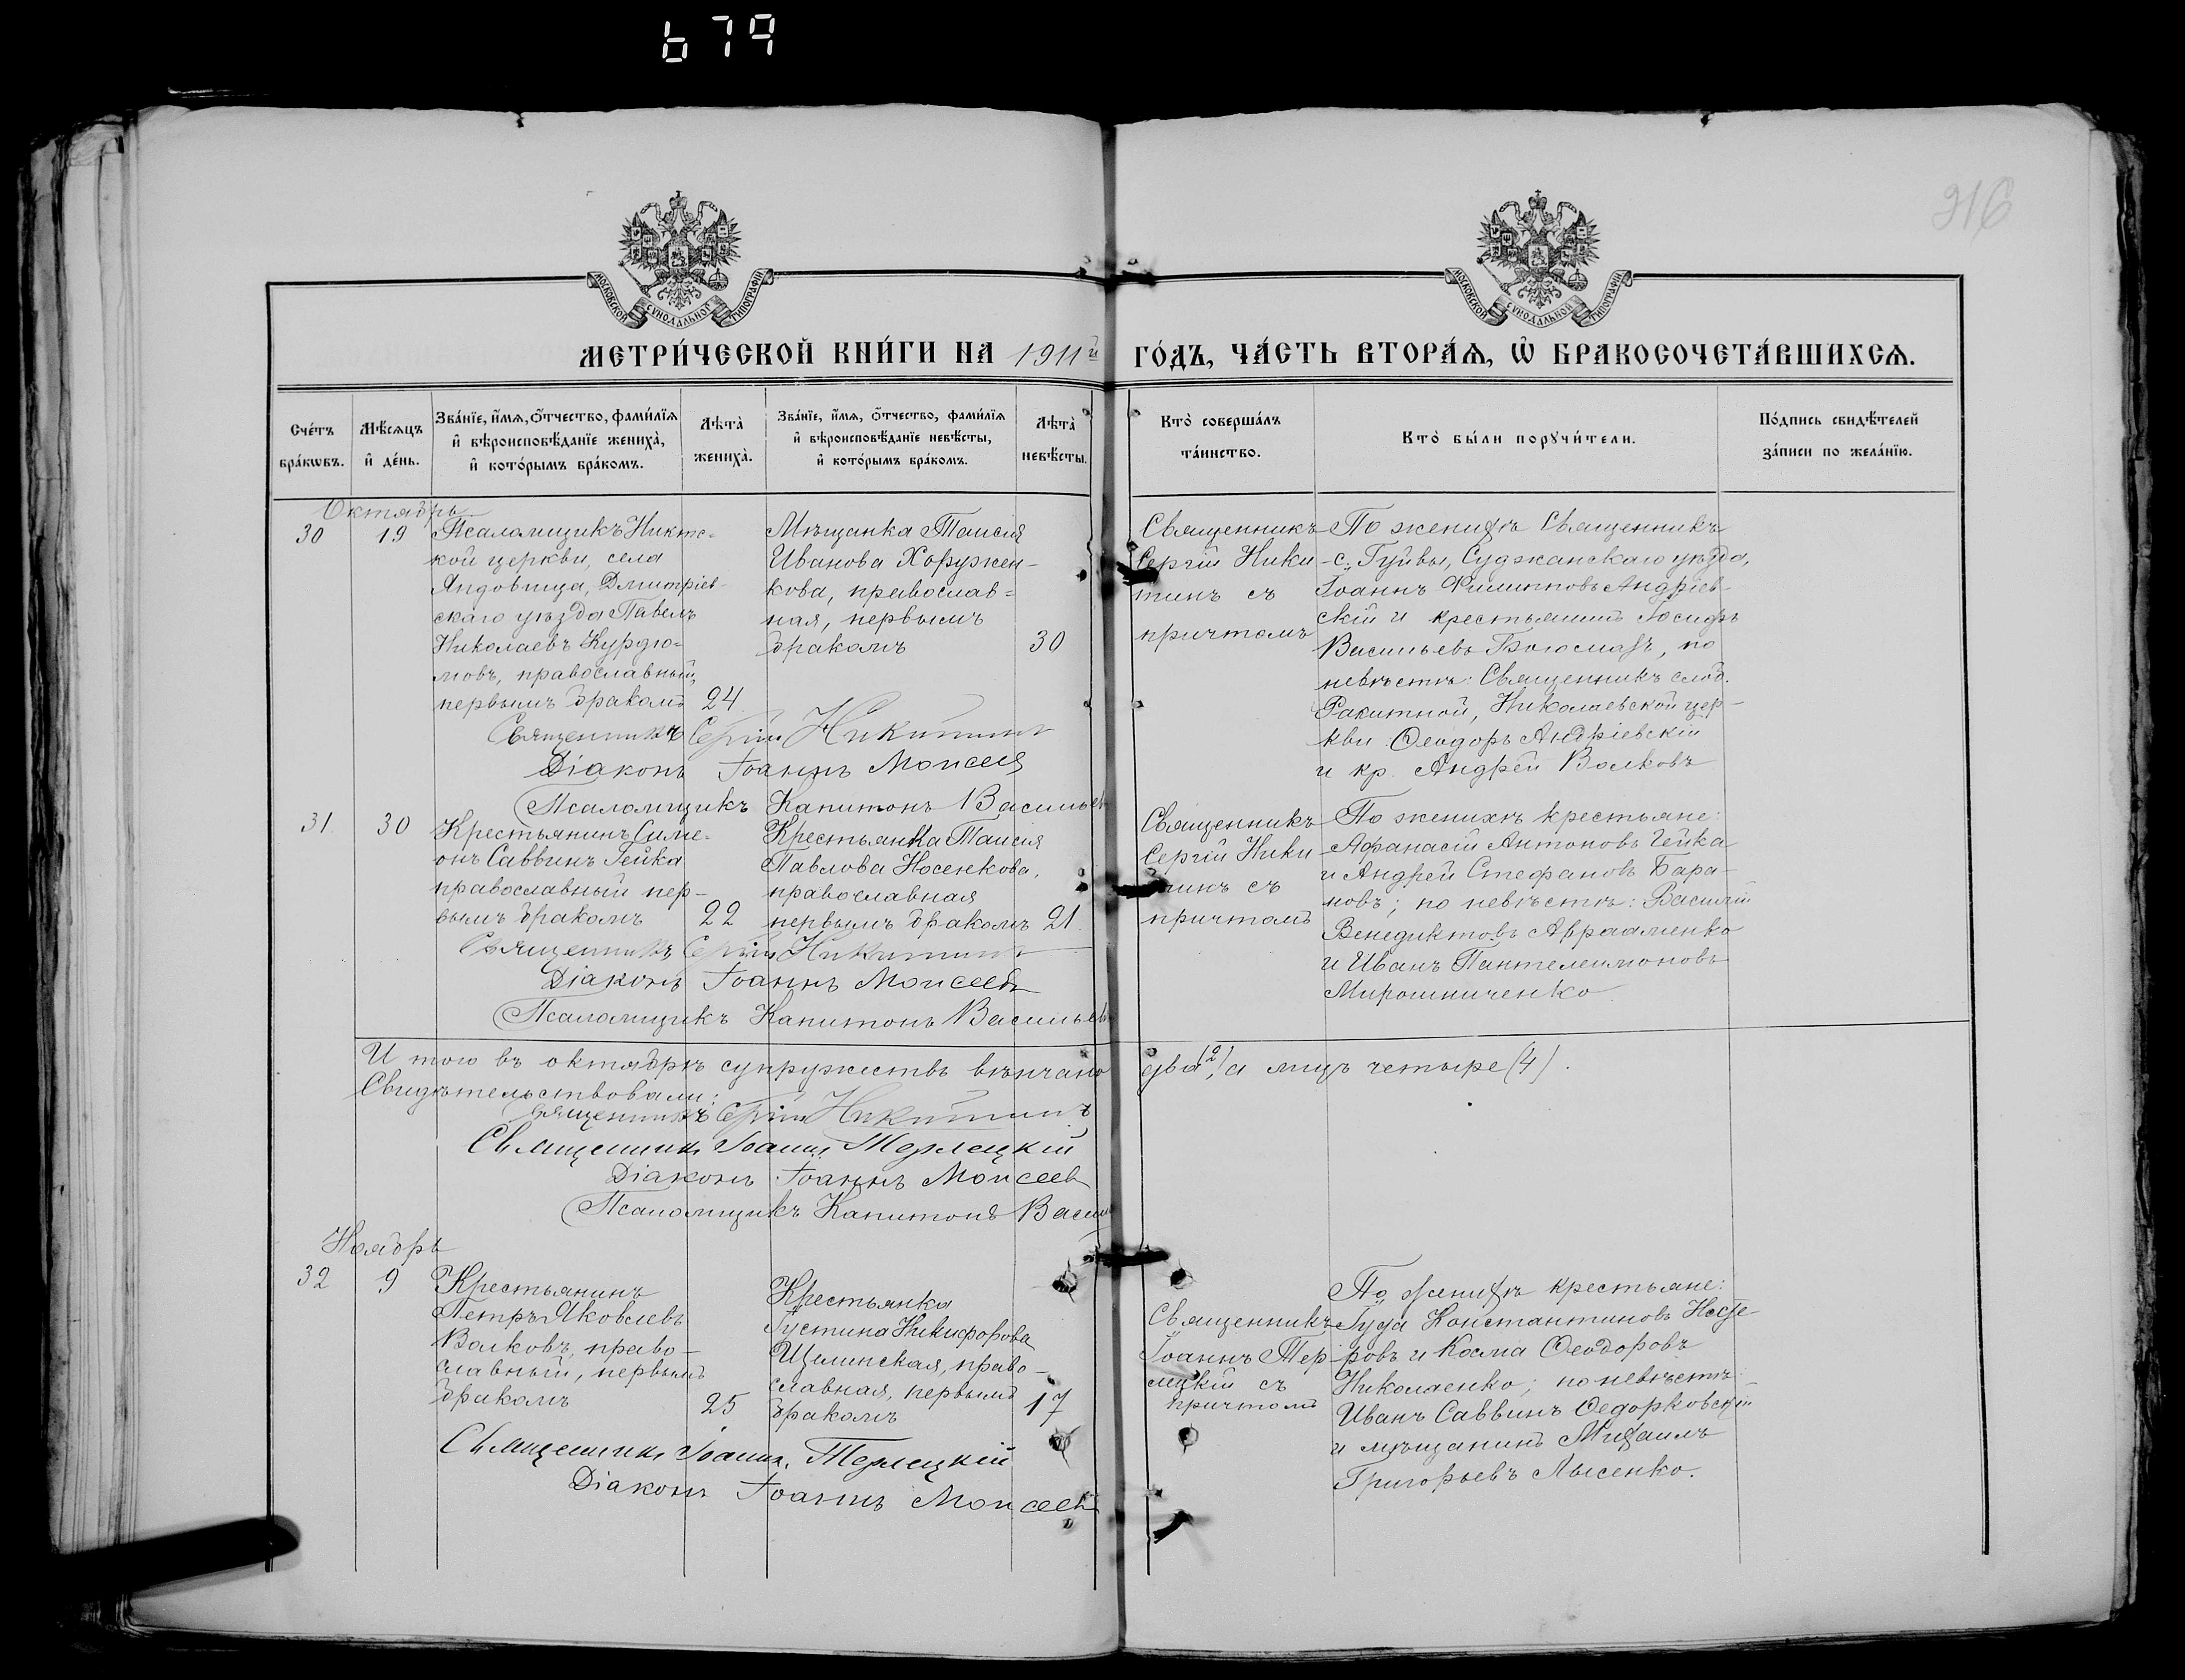 679
916
МОСКОВСКОЙ СѴНОДАЛЬНОЙ ТИПОГРАФІИ
МОСКОВСКОЙ СѴНОДАЛЬНОЙ ТИПОГРАФІИ
МЕТРИ́ЧЕСКОЙ КНИ́ГИ НА 1911й ГО́ДЪ, ЧА́СТЬ ВТОРА́Ѧ, Ѽ БРАКОСОЧЕТА́ВШИХСѦ.
Сче́тъ бра́кѡвъ.
Мѣ́сяцъ и҆ де́нь.
Зва́нїе, и҆́мѧ, ѻ҆́тчество, фами́лїѧ
и҆ вѣроисповѣ́данїе жениха̀,
и҆ кото́рымъ бра́комъ.
Лѣ́та̀ жениха̀.
Зва́нїе, и҆́мѧ, ѻ҆́тчество, фами́лїѧ
и҆ вѣроисповѣ́данїе невѣ́сты,
и҆ кото́рымъ бра́комъ.
Лѣ́та̀ невѣ́сты.
Кто̀ соверша́лъ
та́инство.
Кто̀ бы́ли порꙋчи́тели.
По́дпись свидѣ́телей
за́писи по жела́нїю.
Октябрь
30
19
Псаломщикъ Никитс=
кой церкви, села
Яндовища, Дмитріев-
скаго уѣзда Павелъ
Николаевъ Курдю-
мовъ, православный,
первымъ бракомъ
24
Мѣщанка Таисія
Иванова Хоружен-
кова, православ=
ная, первымъ
бракомъ
30
Священникъ
Сергій Ники
тинъ съ
причтомъ
По женихѣ Священникъ
с. Гуйвы, Суджанскаго уѣзда,
Іоаннъ Филипповъ Андріев-
скій и крестьянинъ Іосифъ
Васильевъ Богомазъ, по
невѣстѣ: Священникъ слоб.
Ракитной, Николаевской цер-
кви Ѳеодоръ Андріевскій
и кр. Андрей Волковъ
Священникъ Сергій Никитинъ
Діаконъ Іоаннъ Моисеев
Псаломщикъ Капитонъ Васильевъ
31
30
Крестьянинъ Симе-
онъ Саввинъ Гейка
православный пер-
вымъ бракомъ
22
Крестьянка Таисія
Павлова Носенкова,
православная
первымъ бракомъ
21
Священникъ
Сергій Ники
тинъ съ
причтомъ
По женихѣ крестьяне:
Афанасій Антоновъ Гейка
и Андрей Стефановъ Бара-
новъ; по невѣстѣ: Василій
Венедиктовъ Авраменко
и Иванъ Пантелеимоновъ
Мирошниченко
Священникъ Сергій Никитинъ
Діаконъ Іоаннъ Моисеевъ
Псаломщикъ Капитонъ Васильевъ
И того въ октябрѣ супружествъ вѣнчано два (2), а лицъ четыре (4).
Свидѣтельствовали:
Священникъ Сергій Никитинъ
Священникъ Іоаннъ Терлецкій
Діаконъ Іоаннъ Моисеев
Псаломщикъ Капитонъ Васи
Ноябрь
32
9
Крестьянинъ
Петръ Яковлевъ
Волковъ, право-
славный, первымъ
бракомъ
25
Крестьянка
Іустина Никифорова
Щелинская, право-
славная, первымъ
бракомъ
17
Священникъ
Іоаннъ Тер-
лецкій съ
причтомъ
По женихѣ крестьяне:
Іуда Константиновъ Носте-
ровъ и Косма Ѳеодоровъ
Николаенко; по невѣстѣ:
Иванъ Саввинъ Ѳедорковскій
и мѣщанинъ Михаилъ
Григорьевъ Лысенко.
Священникъ Іоаннъ Терлецкій
Діаконъ Іоаннъ Моисеевъ